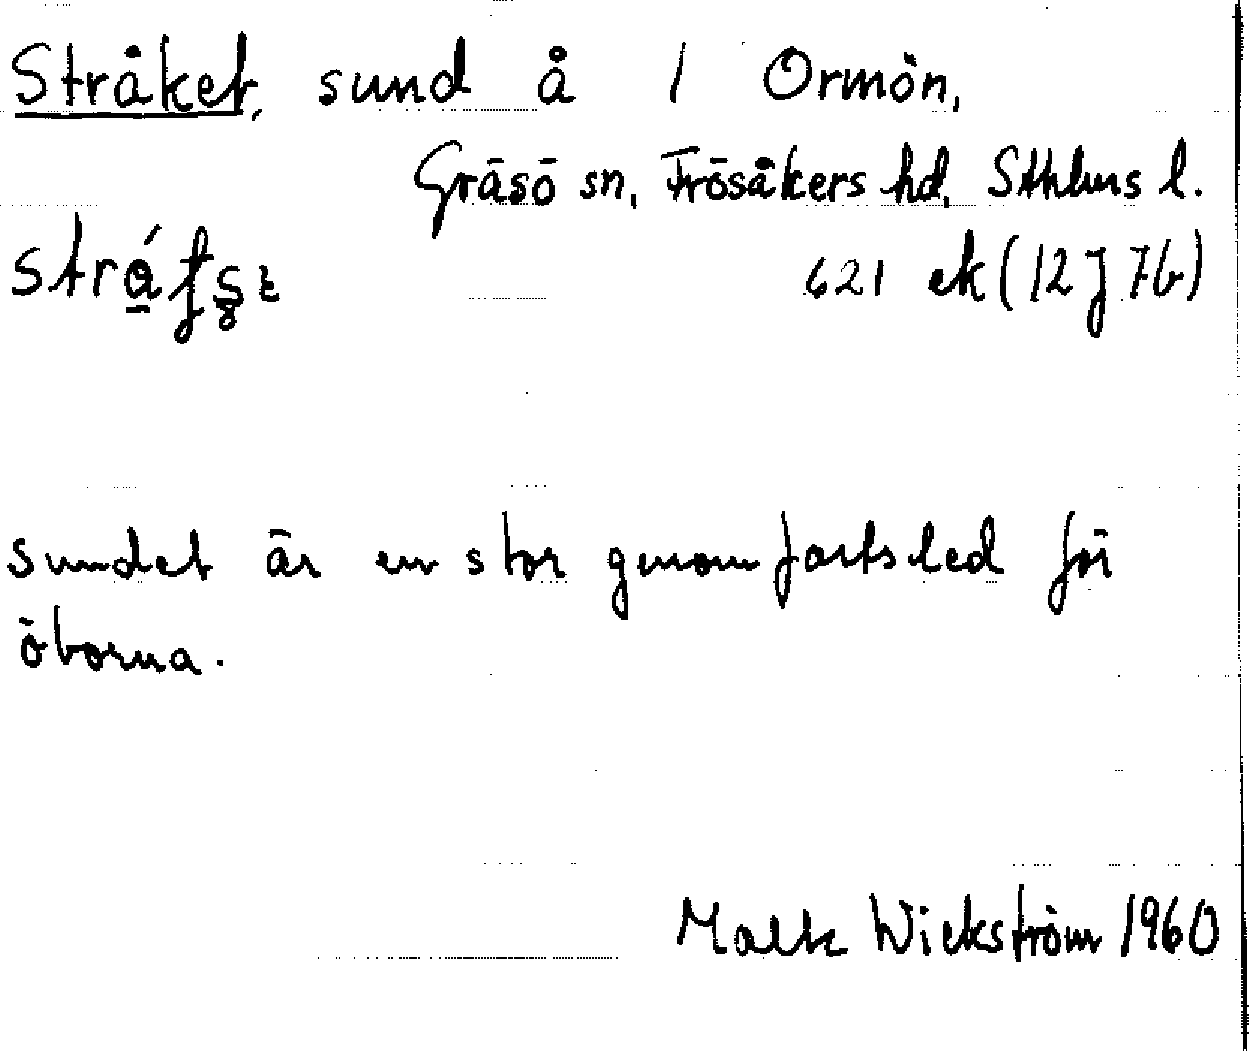 Stråket, sund å 1 Ormön,
Gräsö sn, Frösåkers hd, Sthlms l.
621 ek (12J 7b)
Sundet är en stor genomfartsled för
öborna.
Wickström 1960